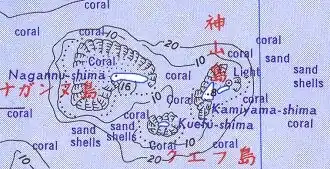 coral
coral
10
20
10
coral
神山島
coral
Coral
coral
Light
Nagannu-shima
16
8
ナガンヌ島
Coral
Kamiyama-shima
coral
sand
shells
sand
shells
Kuefu-shima
sand
shells
coral
10
Coral
クエフ島
coral
20